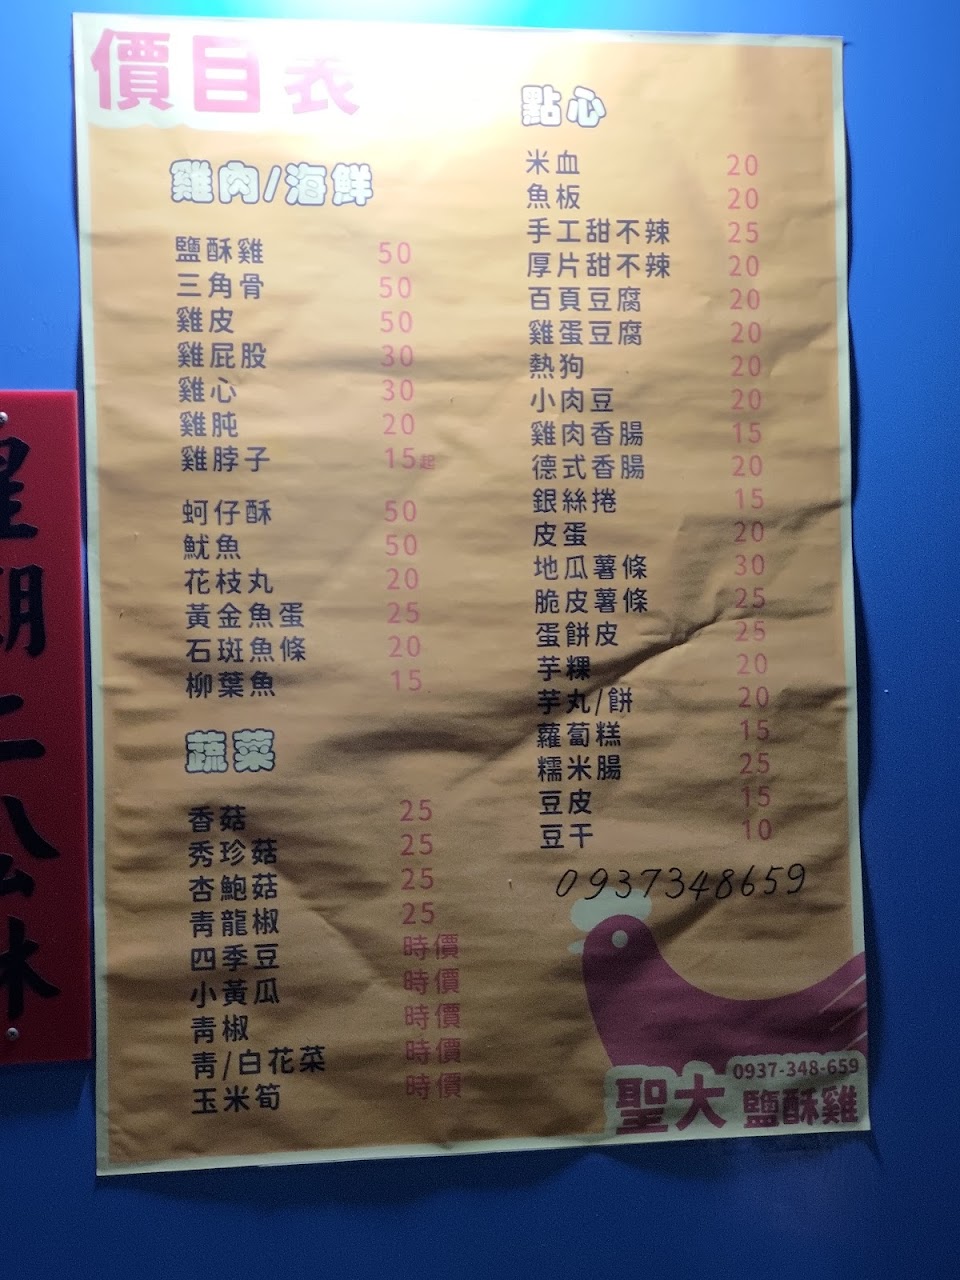 價目表
雞肉/海鮮
鹽酥雞 50
三角骨 50
雞皮 50
雞屁股 30
雞心 30
雞肫 20
雞脖子 15起
蚵仔酥 50
魷魚 50
花枝丸 20
黃金魚蛋 25
石斑魚條 20
柳葉魚 15
蔬菜
香菇 25
秀珍菇 25
杏鮑菇 25
青龍椒 25
四季豆 時價
小黃瓜 時價
青椒 時價
青/白花菜 時價
玉米筍 時價
點心
米血 20
魚板 20
手工甜不辣 25
厚片甜不辣 20
百頁豆腐 20
雞蛋豆腐 20
熱狗 20
小肉豆 20
雞肉香腸 15
德式香腸 20
銀絲捲 15
皮蛋 20
地瓜薯條 30
脆皮薯條 25
蛋餅皮 25
芋粿 20
芋丸/餅 20
蘿蔔糕 15
糯米腸 25
豆皮 15
豆干 10
0937348659
0937-348-659
聖大鹽酥雞